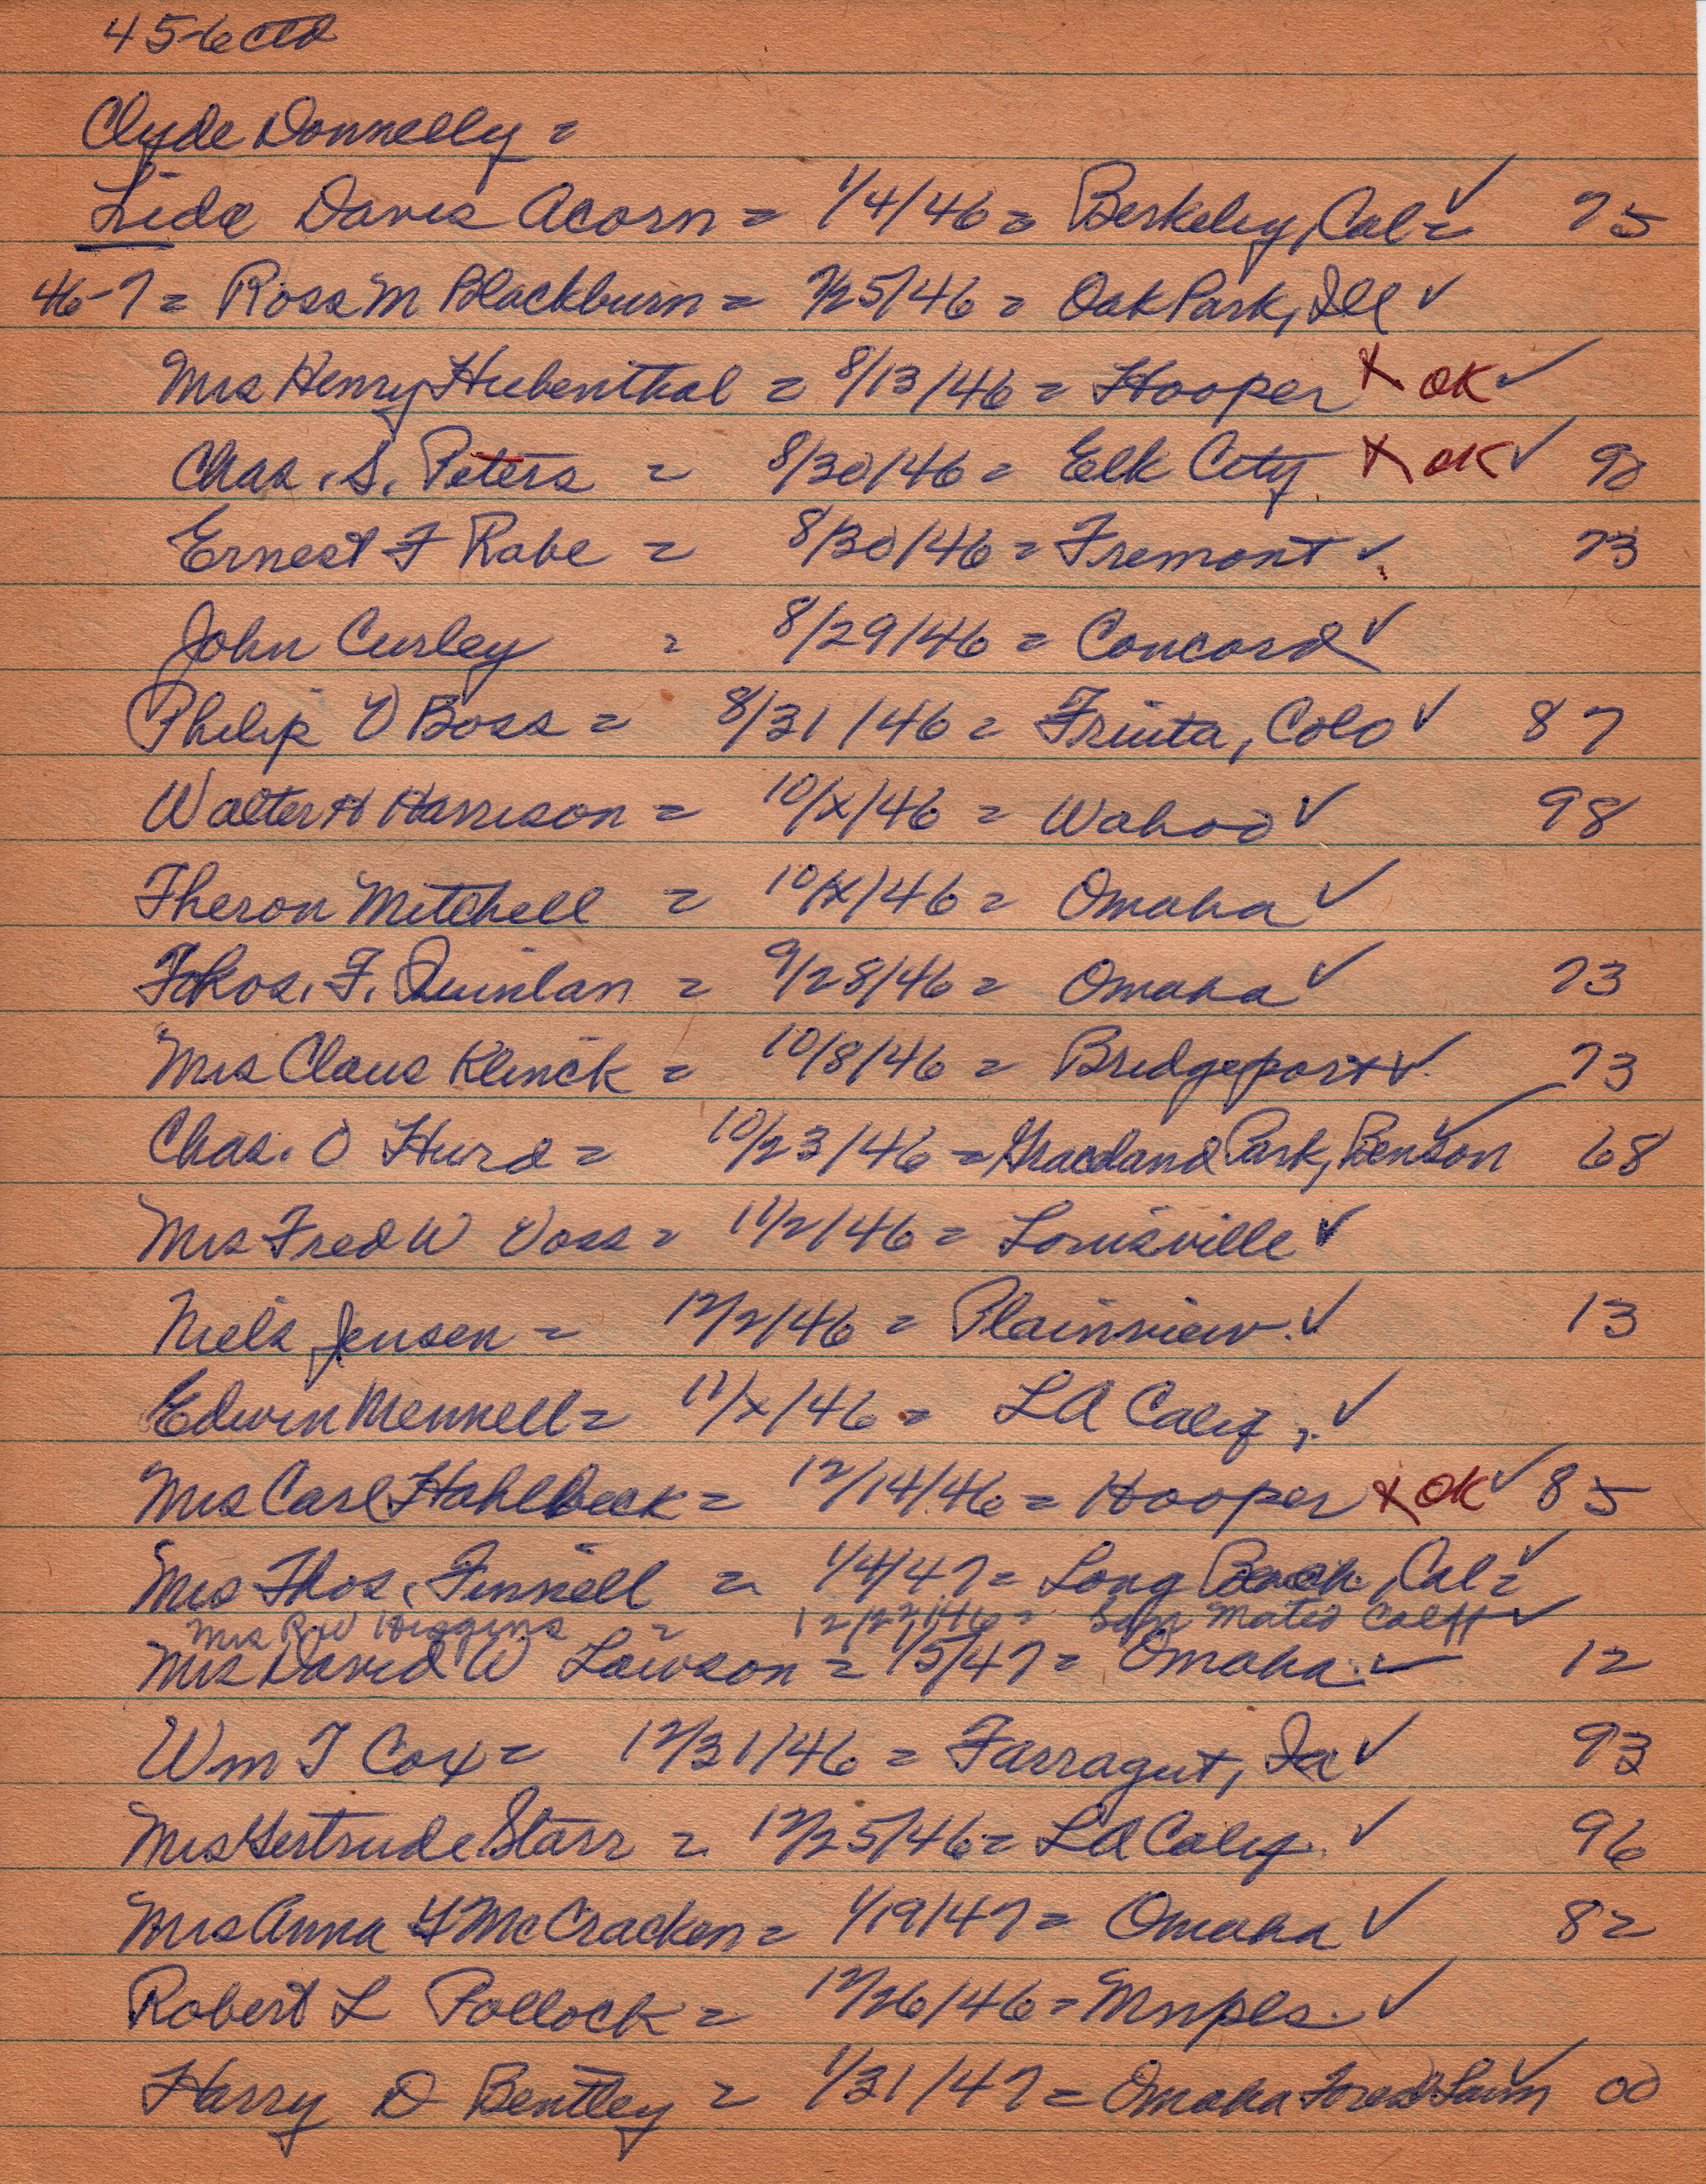 45-6 ctd
Clyde Donnelly =
Lida Davis Acorn = 1/4/46 = Berkeley, Cal = ✓ 75
46-7 = Ross M Blackburn = 7/25/46 = Oak Park, Ill ✓
Mrs Henry Hubenthal = 8/13/46 = Hooper X OK ✓
Chas. S. Peters = 8/30/46 = Elk City X OK ✓ 90
Ernest F Rabe = 8/30/46 = Fremont ✓ 73
John Curley = 8/29/46 = Concord ✓
Philip D Boss = 8/31/46 = Friuta, Colo ✓ 87
Walter H Harrison = 10/X/46 = Wahoo ✓ 98
Theron Mitchell = 10/X/46 = Omaha ✓
Thos. F. Quinlan = 9/28/46 = Omaha ✓ 73
Mrs Claus Klinck = 10/8/46 = Bridgeport ✓ 73
Chas. O Hurd = 10/23/46 = Graceland Park, Benson ✓ 68
Mrs Fred W Voss = 11/2/46 = Louisville ✓
Niels Jensen = 12/2/46 = Plainview ✓ 13
Edwin Mennell = 11/X/46 = LA Calif, ✓
Mrs Carl Hahlbeck = 12/14/46 = Hooper X OK ✓ 85
Mrs Thos. Finnell = 1/4/47 = Long Beach, Cal = ✓
Mrs R W Higgins = 12/22/46 = San Mateo Calif ✓
Mrs David W Lawson = 1/5/47 = Omaha ✓ 12
Wm T Cox = 12/31/46 = Farragut, Ia ✓ 93
Mrs Gertrude Starr = 12/25/46 = LA Calif. ✓ 96
Mrs Anna Y McCracken = 1/19/47 = Omaha ✓ 82
Robert L Pollock = 12/26/46 = Mnpls. ✓
Harry D Bentley = 1/31/47 = Omaha Forest Lawn ✓ 00